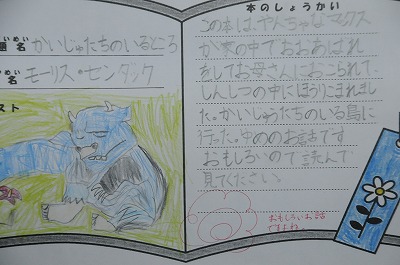 いめい
題名 かいじゅうたちのいるところ
名 モーリス・センダック
スト
本のしょうかい
この本は、やんちゃなマックス
が家の中でおおあばれ
をしてお母さんにおこられて、
しんしつの中にほうりこまれまし
た。かいじゅうたちのいる島に
行った。中のお話です
おもしろいので読んで
見てください。
おもしろいお話
ですね。